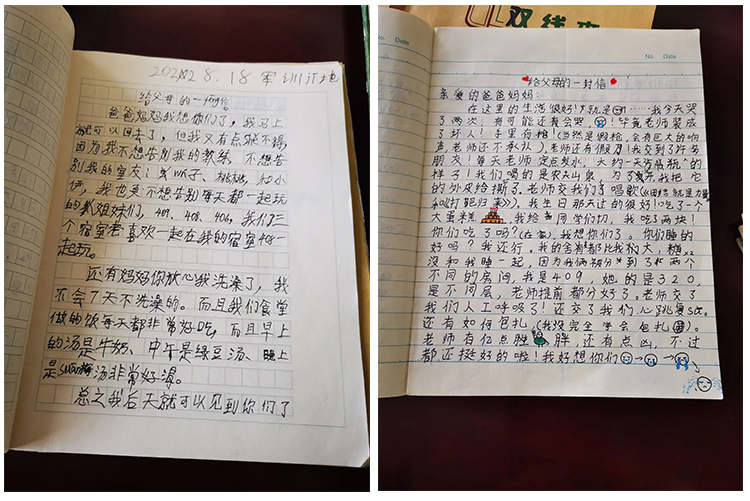 2022 8.18 军训汗地
给父母的一封信
爸爸妈妈我想你们了，我马上
就可以回去了，但我又有点舍不得，
因为我不想告别我的教练，不想告
别我的室友：桃桃，和小
我也更不想告别每天都一起玩
的姐妹们，409、408、406，我们三
个宿室老喜欢一起在我的宿室
一起玩。
还有妈妈你放心我洗澡了，我
不会7天不洗澡的。而且我们食堂
做的饭每天都非常好吃，而且早上
的汤是牛奶、中午是绿豆汤、晚上
是suan梅汤非常好渴。
总之我后天就可以见到你们了
双线本
No.
Date
No.
Date
给父母的一封信
亲爱的爸爸妈妈：
在这里的生活很好！就是……我今天哭
了两次，有可能还有会哭！毕竟老师装成
了坏人！手里有枪！（当然是假枪，会有巨大的响
声老师还不承认），老师还有假刀！我交到了许多
朋友！每天老师定点发水，大约一天
样子！我们喝的是农夫山泉，为了我把它
的外皮给撕了。老师交我们唱歌（《团结就是力量》
和《打靶归来》），我生日那天过的很好！吃了一个
大蛋糕，我给同学们切，我吃了两块！
你们吃了吗？（在家），我想你们了。你们睡的
好吗？我还行，我的舍有都比我们大，
没和我睡一起，因为我俩被分到了两个
不同的房间，我是409，她的是320，
是不同层，老师提前都分好了。老师交了
我们人工呼吸！还交了我们心跳复苏。
还有如何包扎，（我没完全学会包扎）。
老师有亿点胖胖，还有点凶，不过
都还挺好的啦！我好想你们